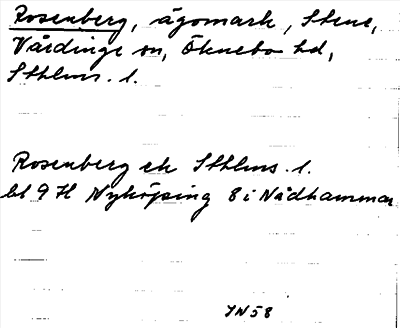 Rosenberg, ägomark, Stene,
Vårdinge sn, Öknebo hd,
Sthlms. l.
Rosenberg ek Sthlms. l.
bl 9 H Nyköping 8 i Nådhammar
IN 58